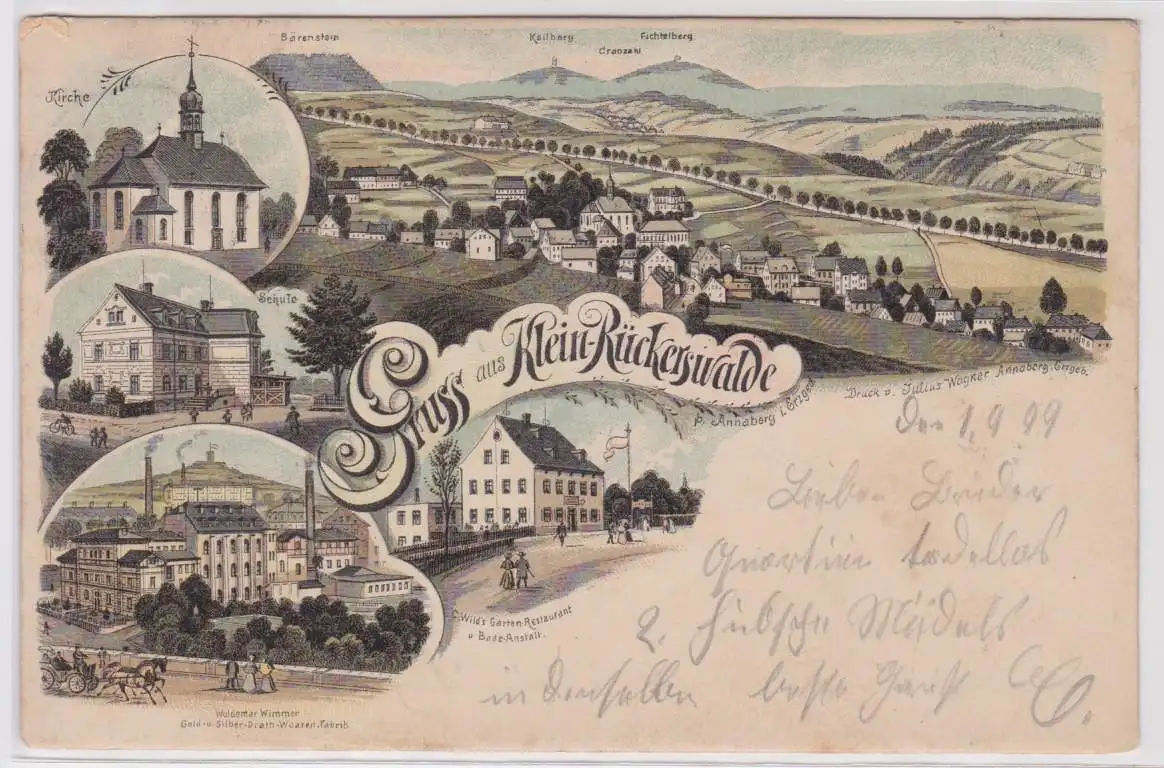 Bärenstein
Keilberg
Fichtelberg
Cranzahl
Kirche
Schule
Gruss aus Klein-Rückerswalde
p. Annaberg i. Erzgeb.
Druck v. Julius Wagner Annaberg. Erzgeb.
Den 1.9 99
Lieber Bruder
Quartier tadellos
2. hübsche Mädels
in denselben beste
C. Wild's Garten-Restaurant
u Bade-Anstalt.
Woldemar Wimmer
Gold- u. Silber-Drath-Waaren.Fabrik